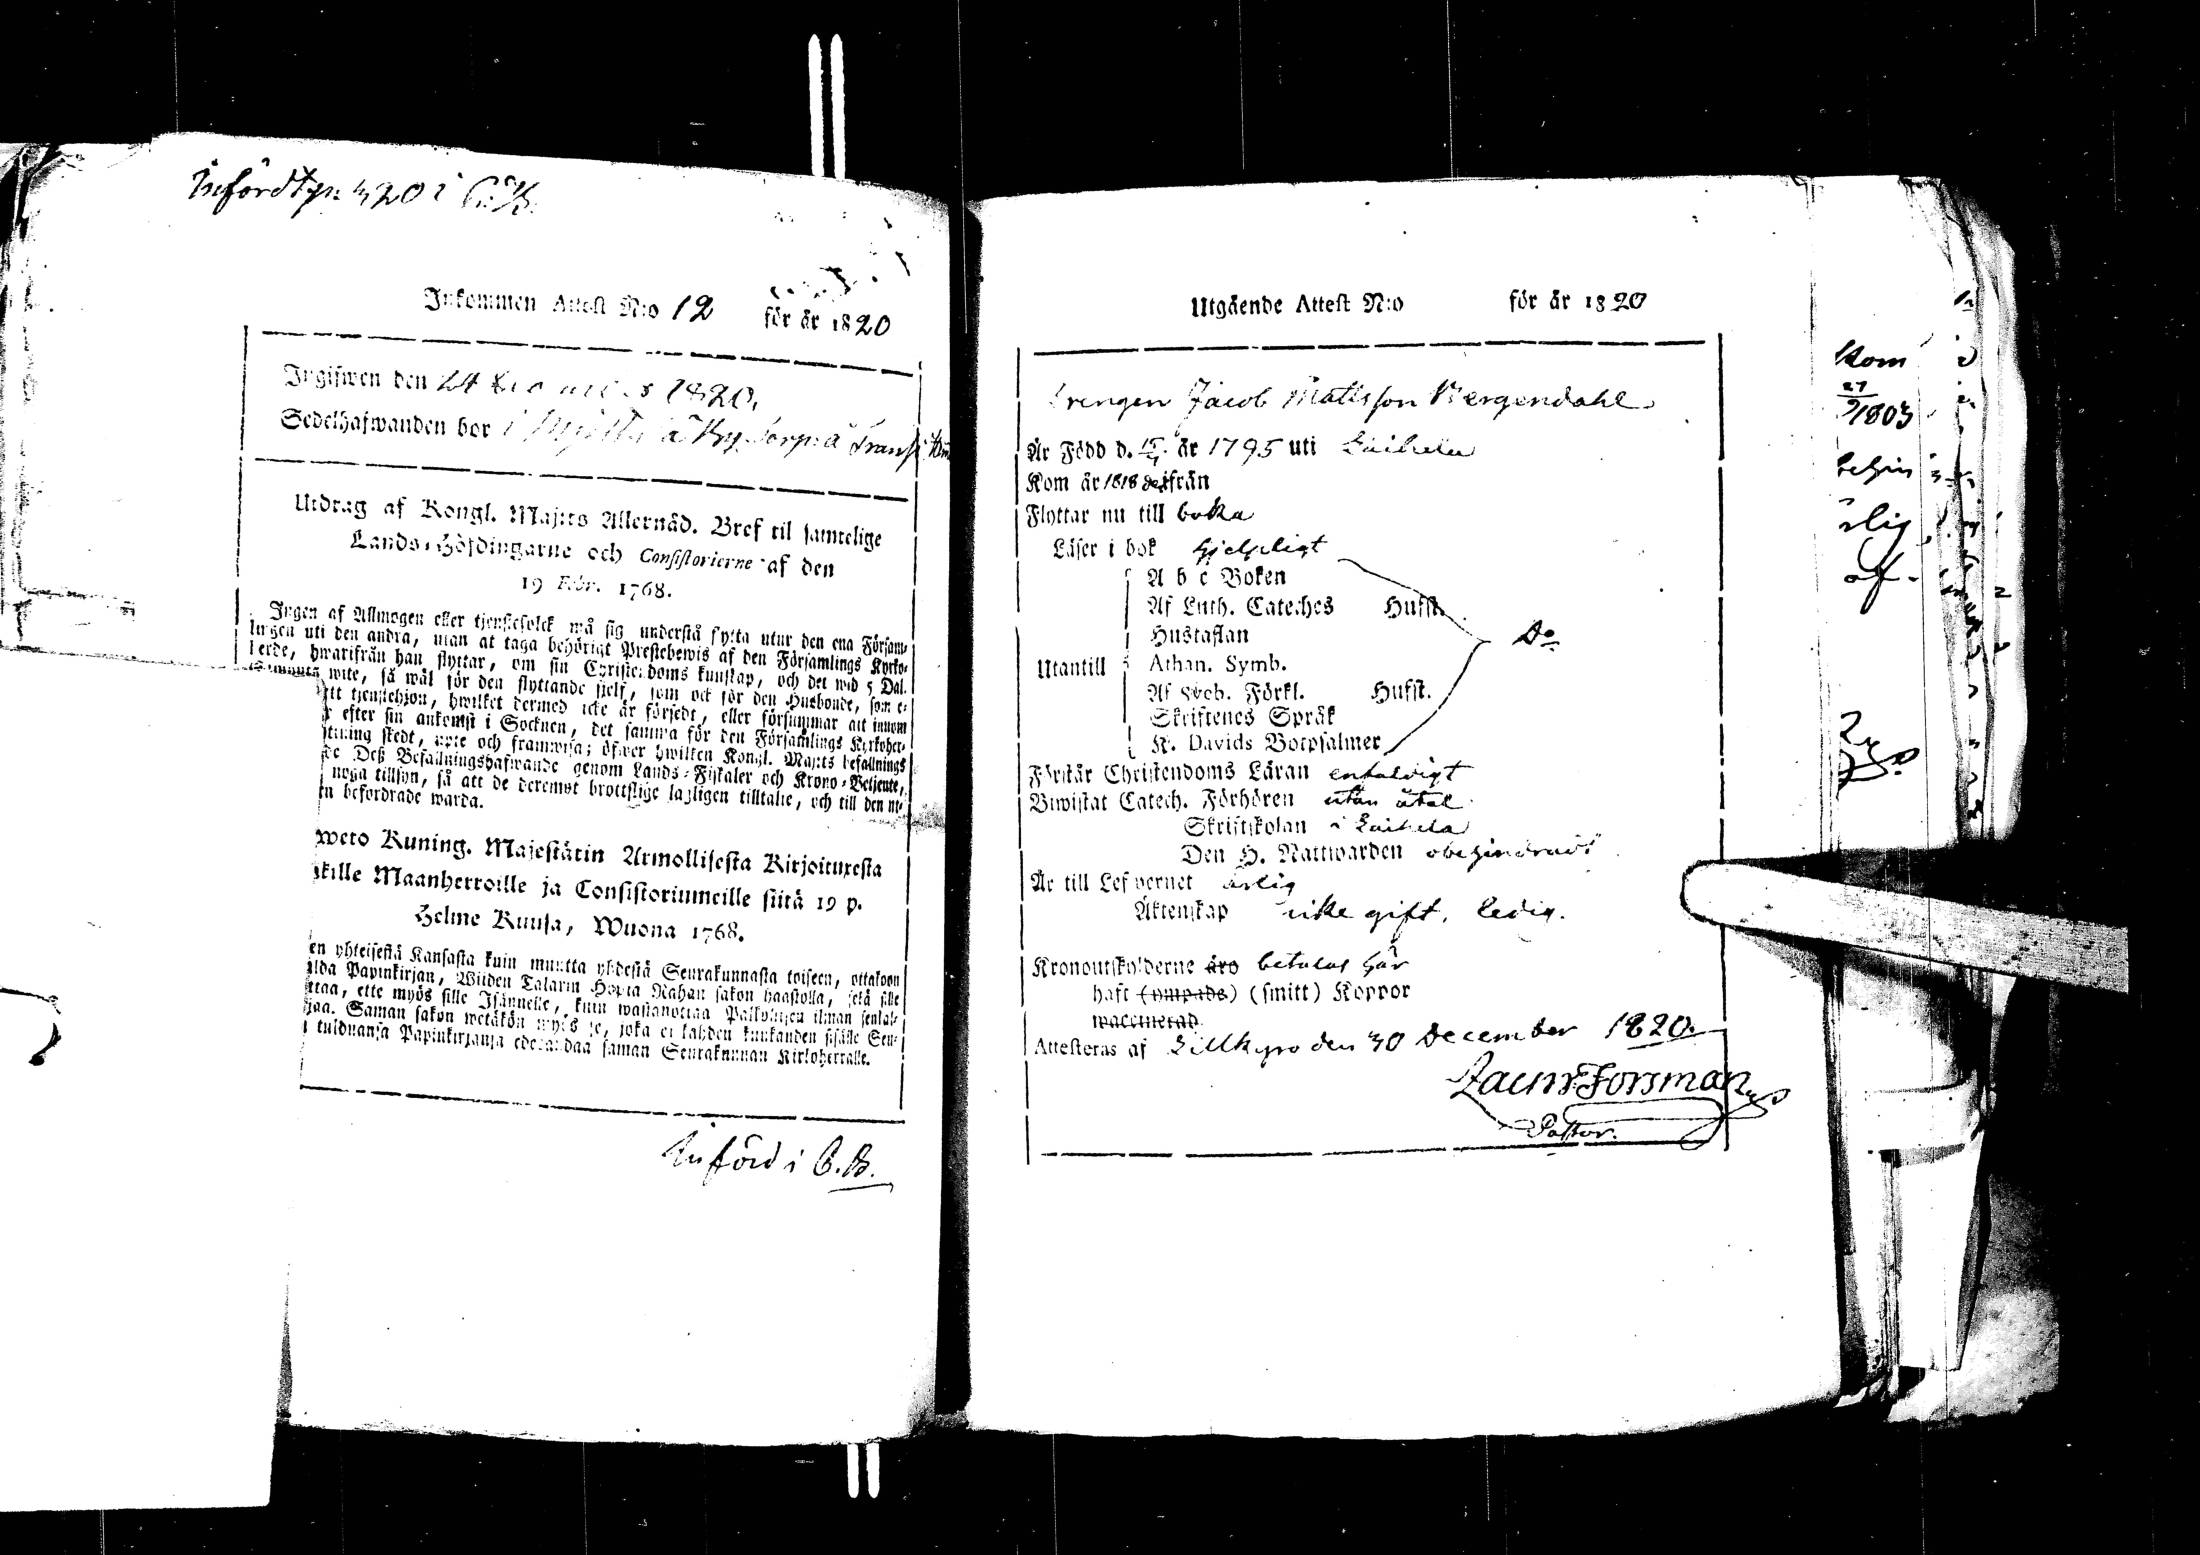 Införd p: 420 i C.B.
Inkommen Attest N:o 12 för år 1820
Ingifwen den 24 1820.
Sedelhafwanden bor i
Utdrag af Kongl. Maj:ts Allernåd. Bref til samtelige
Lands-Höfdingarne och Consistorierne af den
19 Febr. 1768.
Ingen af Allmogen eller tjenstefolck må sig understå flytta utur den ena Försam-
lingen uti den andra, utan at taga behörigt Prestebewis af den Församlings Kyrko-
herde, hwarifrån han flyttar, om sin Christendoms kunskap, och det wid 5 Dal.
S:mynts wite, så wäl för den flyttande sjelf, som ock för den Husbonde, som e-
tt tjenstehjon, hwilket dermed icke är försedt, eller försummar att innom
efter sin ankomst i Socknen, det samma för den Församlings Kyrkoher-
skedt, upte och framwisa; öfwer hwilken Kongl. Maj:ts befallnings
Deß Befallningshafwande genom Lands-Fiskaler och Krono-Betjente,
noga tillsyn, så att de deremot brottslige lagligen tilltalte, och till den ut-
befordrade warda.
weto Kuning. Majestätin Armollisesta Kirjoituxesta
kille Maanherroille ja Consistoriumeille siitä 19 p.
Helme Kuusa, Wuona 1768.
en yhteisestä Kansasta kuin muutta yhdestä Seurakunnasta toiseen, ottakoon
Papinkirjan, Wiiden Talarin Hopia Rahan sakon haastolla, sekä sille
ttaa, ette myös sille Isännelle, kuin wastanottaa Palkolisen ilman senlai-
jaa. Saman sakon wetäkön myös se, joka ei kahden kuukauden sisälle Seu-
tulduansa Papinkirjansa edesandaa saman Seurakunnan Kirkoherralle.
Införd i C.B.
Utgående Attest N:o för år 1820
Drengen Jacob Mattsson Bergendahl
Är Född d. 15/ år 1795 uti Laihela
Kom år 1818 derifrån
Flyttar nu till baka
Läser i bok hjelpligt
A b c Boken
Af Luth. Cateches Hufst.
Hustaflan
Do
Utantill Athan. Symb.
Af Sveb. Förkl. Hufst.
Skriftenes Språk
K. Davids Botpsalmer
Förstår Christendoms Läran enfaldigt
Biwistat Catech. Förhören utan åtal
Skriftskolan i Laihela
Den H. Nattwarden obehindradt
Är till Lefvernet ärlig
Äktenskap icke gift, ledig.
Kronoutskylderne äro betalas här
haft (ympade) (smitt) Koppor
waccinerad
Attesteras af Lillkyro den 30 December 1820.
Zachr: Forsman
Pastor.
Kom
27/9 1803
behin
ärlig
af